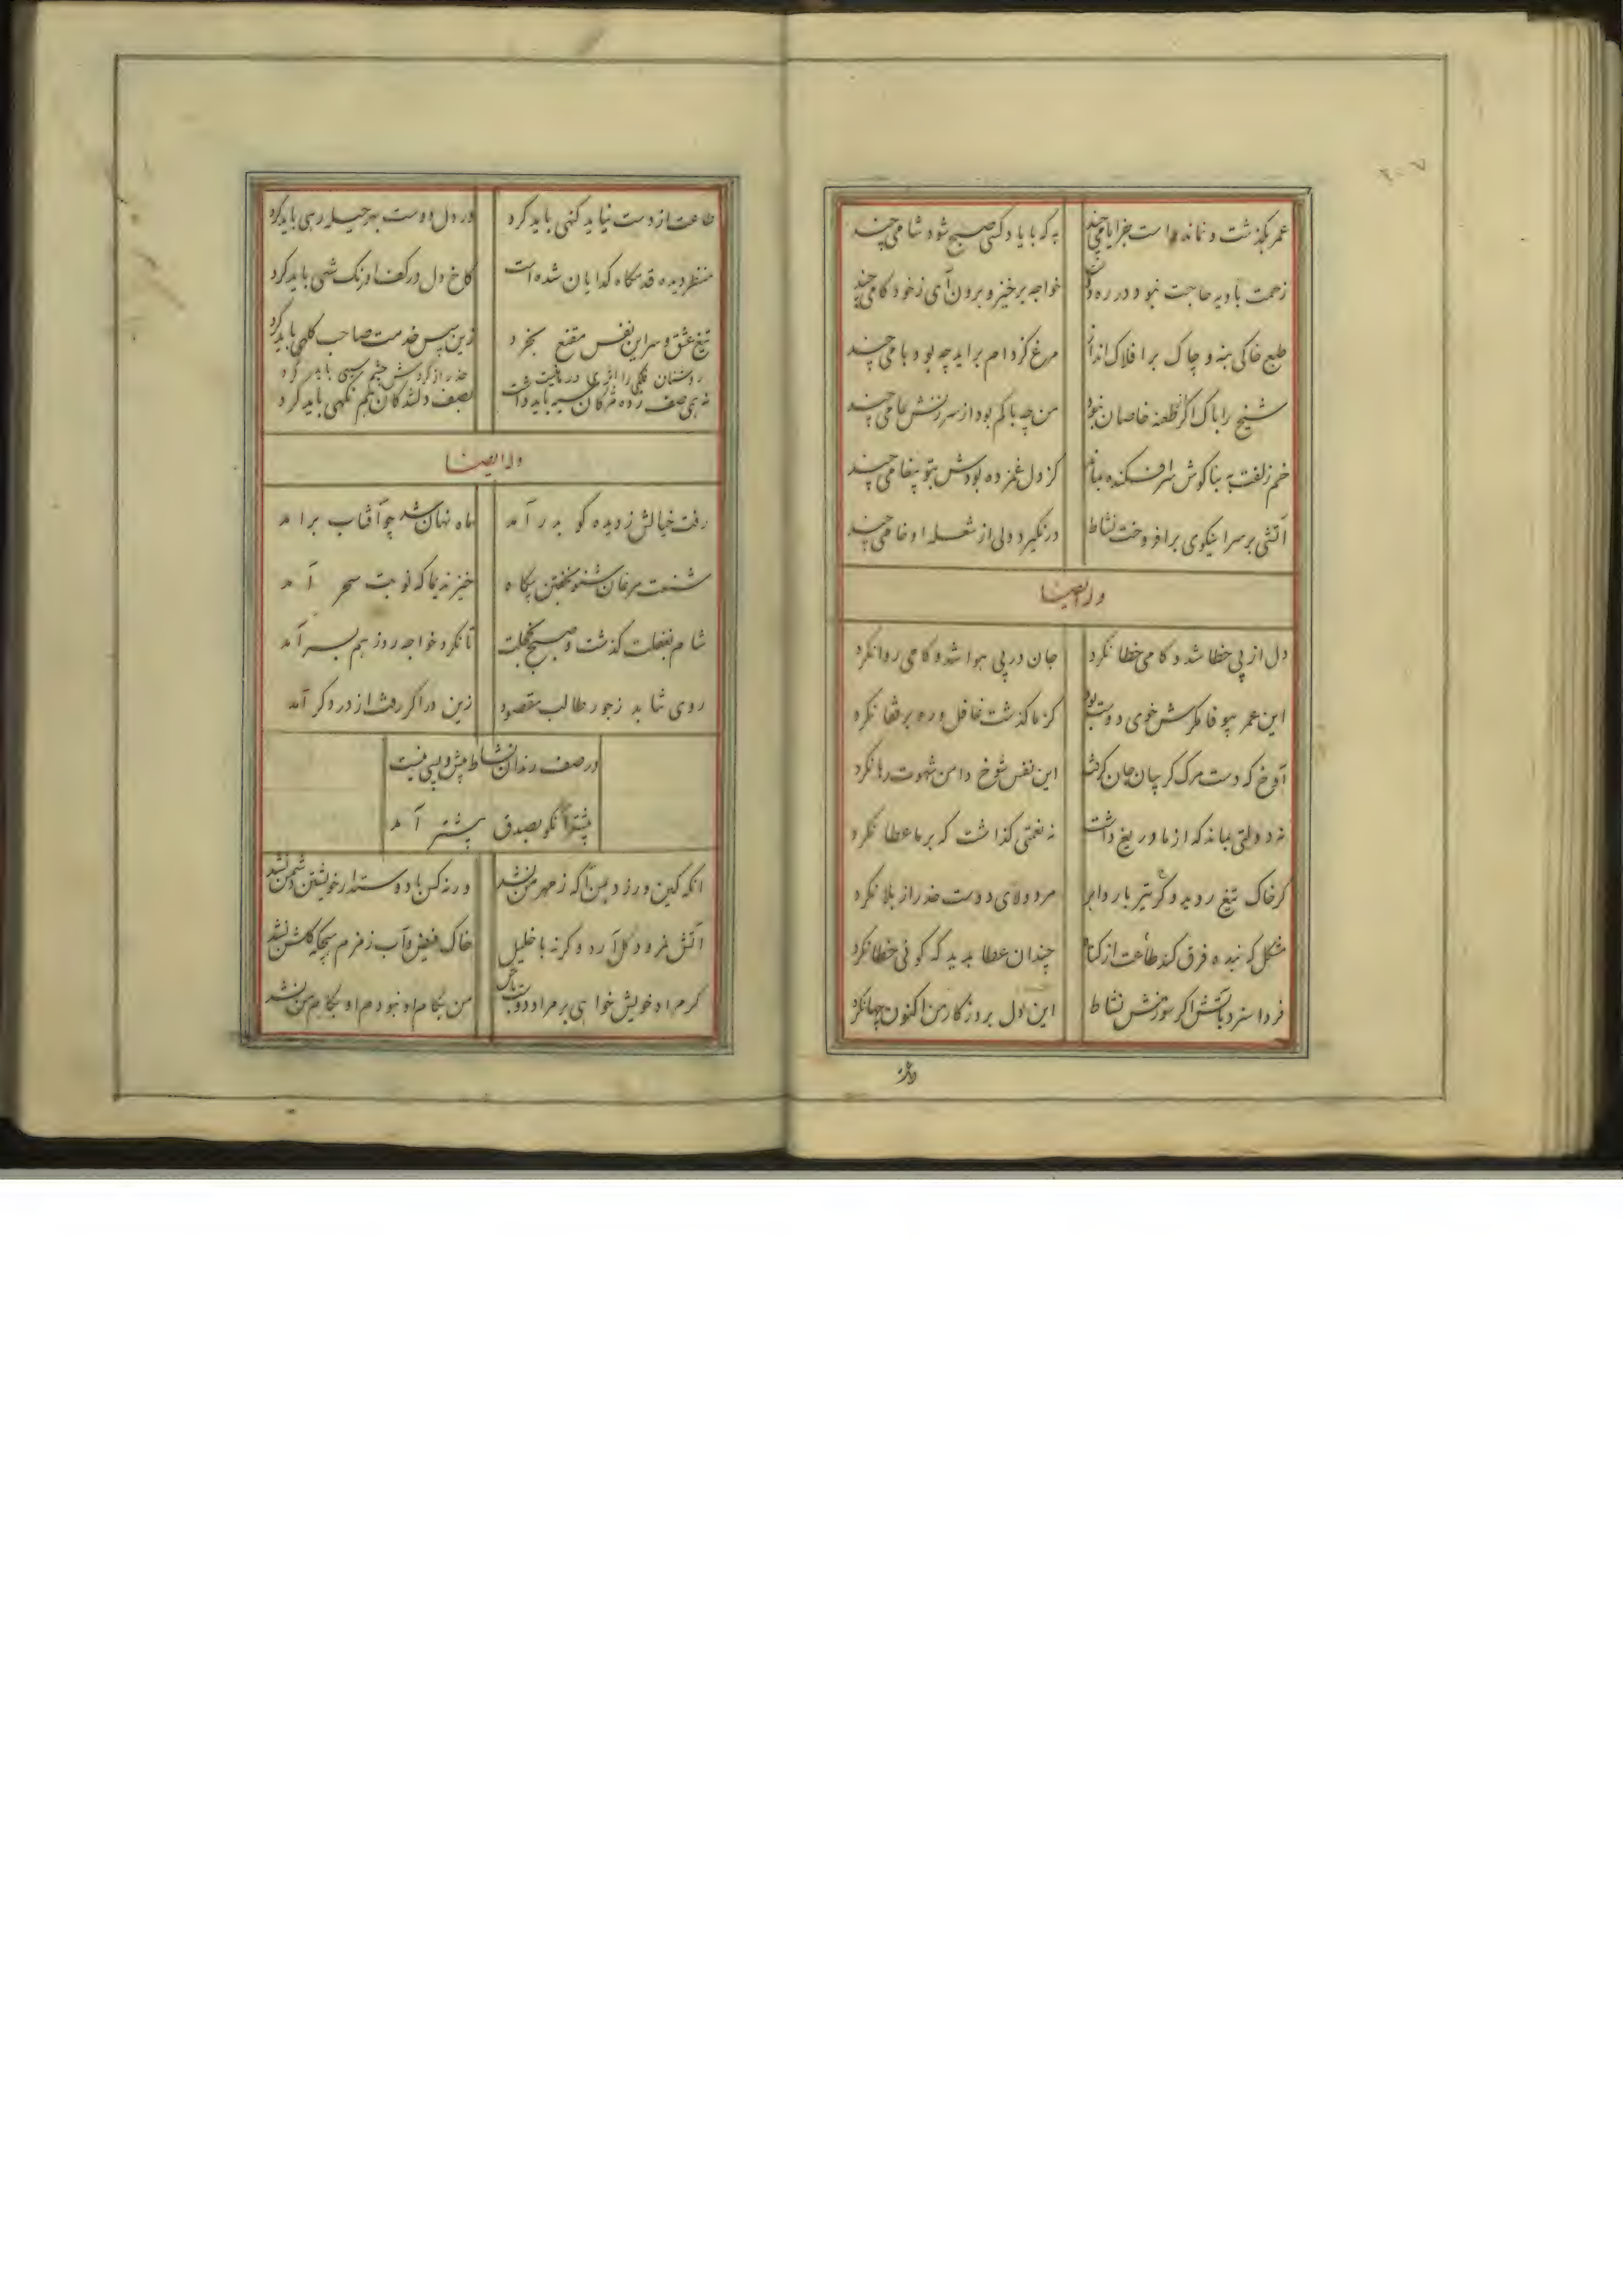 ۲۰۷
عمر بگذشت و نماند است جز ایامی چند به که با یاد کسی صبح شود شامی چند
زحمت بادیه حاجت نبود در ره دوست خواجه برخیز و برون آی ز خود کامی چند
طبع خاکی بنه و چاک بر افلاک انداز مرغ کز دام براید چه بود بامی چند
شیخ را باک اگر از طعنه خاصان نبود من چه باکم بود از سرزنش عامی چند
خم زلفت به بناگوش سرافکنده بماند کز دل غمزده بودش بتو پیغامی چند
آتشی بر سر اینکوی برافروخت نشاط در نگیرد ولی از شعله او خامی چند
وله ایضا
دل از پی خطا شد و کامی خطا نکرد جان در پی هوا شد و کامی روا نکرد
این عمر بیوفا مکرش خوی دوست بود کز ما گذشت غافل و ره بر قفا نکرد
آوخ که دست مرک کریبان جان کرفت این نفس شوخ دامن شهوت رها نکرد
نه دولتی بماند که از ما دریغ داشت نه نعمتی گذاشت که بر ما عطا نکرد
کر خاک تیغ روید و کر تیر بارد ابر مرد ولای دوست حذر از بلا نکرد
مشکل که بنده فرق کند طاعت از کناه چندان عطا بدید که کوئی خطا نکرد
فردا سزد بآتش اگر سوزنش نشاط این دل بروزکار من اکنون چها نکرد
طاعت از دست نیاید کنهی باید کرد در دل دوست بهر حیله رهی باید کرد
منظر دیده قدمگاه کدایان شده است کاخ دل در کف اورنک شهی باید کرد
تیغ عشق و سر این نفس مقنع بخرد زین سپس خدمت صاحب کلهی باید کرد
روشنان فلکی را اثری در ما نیست حذر از کردش چشم سیهی باید کرد
نه همی صف زده مژکان سیه باید داشت بصف دلشدکان هم نکهی باید کرد
وله ایضا
رفت خیالش ز دیده کو بدر آمد ماه نهان شد چو آفتاب برامد
شنعت مرغان شنو بخفتن بیکاه خیز ندیما که نوبت سحر آمد
شام بغفلت کذشت و صبح بخجلت تا نکرد خواجه روز هم بسر آمد
روی نتابد ز جور طالب مقصود زین در اکر رفت از در دکر آمد
در صف رندان نشاط پیش و پسی نیست
پیشتر آنکو بصدق پیشتر آمد
انکه کین ورزد ببین اکه ز مهر من نشد ورنه کس با دوستدار خویشتن دشمن نشد
آتش نمرود کل آرد و کرنه با خلیل خاک فیض و آب زمزم هیچکه کلشن نشد
کر مراد خویش خواهی بر مراد دوست باش من بکام او نبودم او بکام من نشد